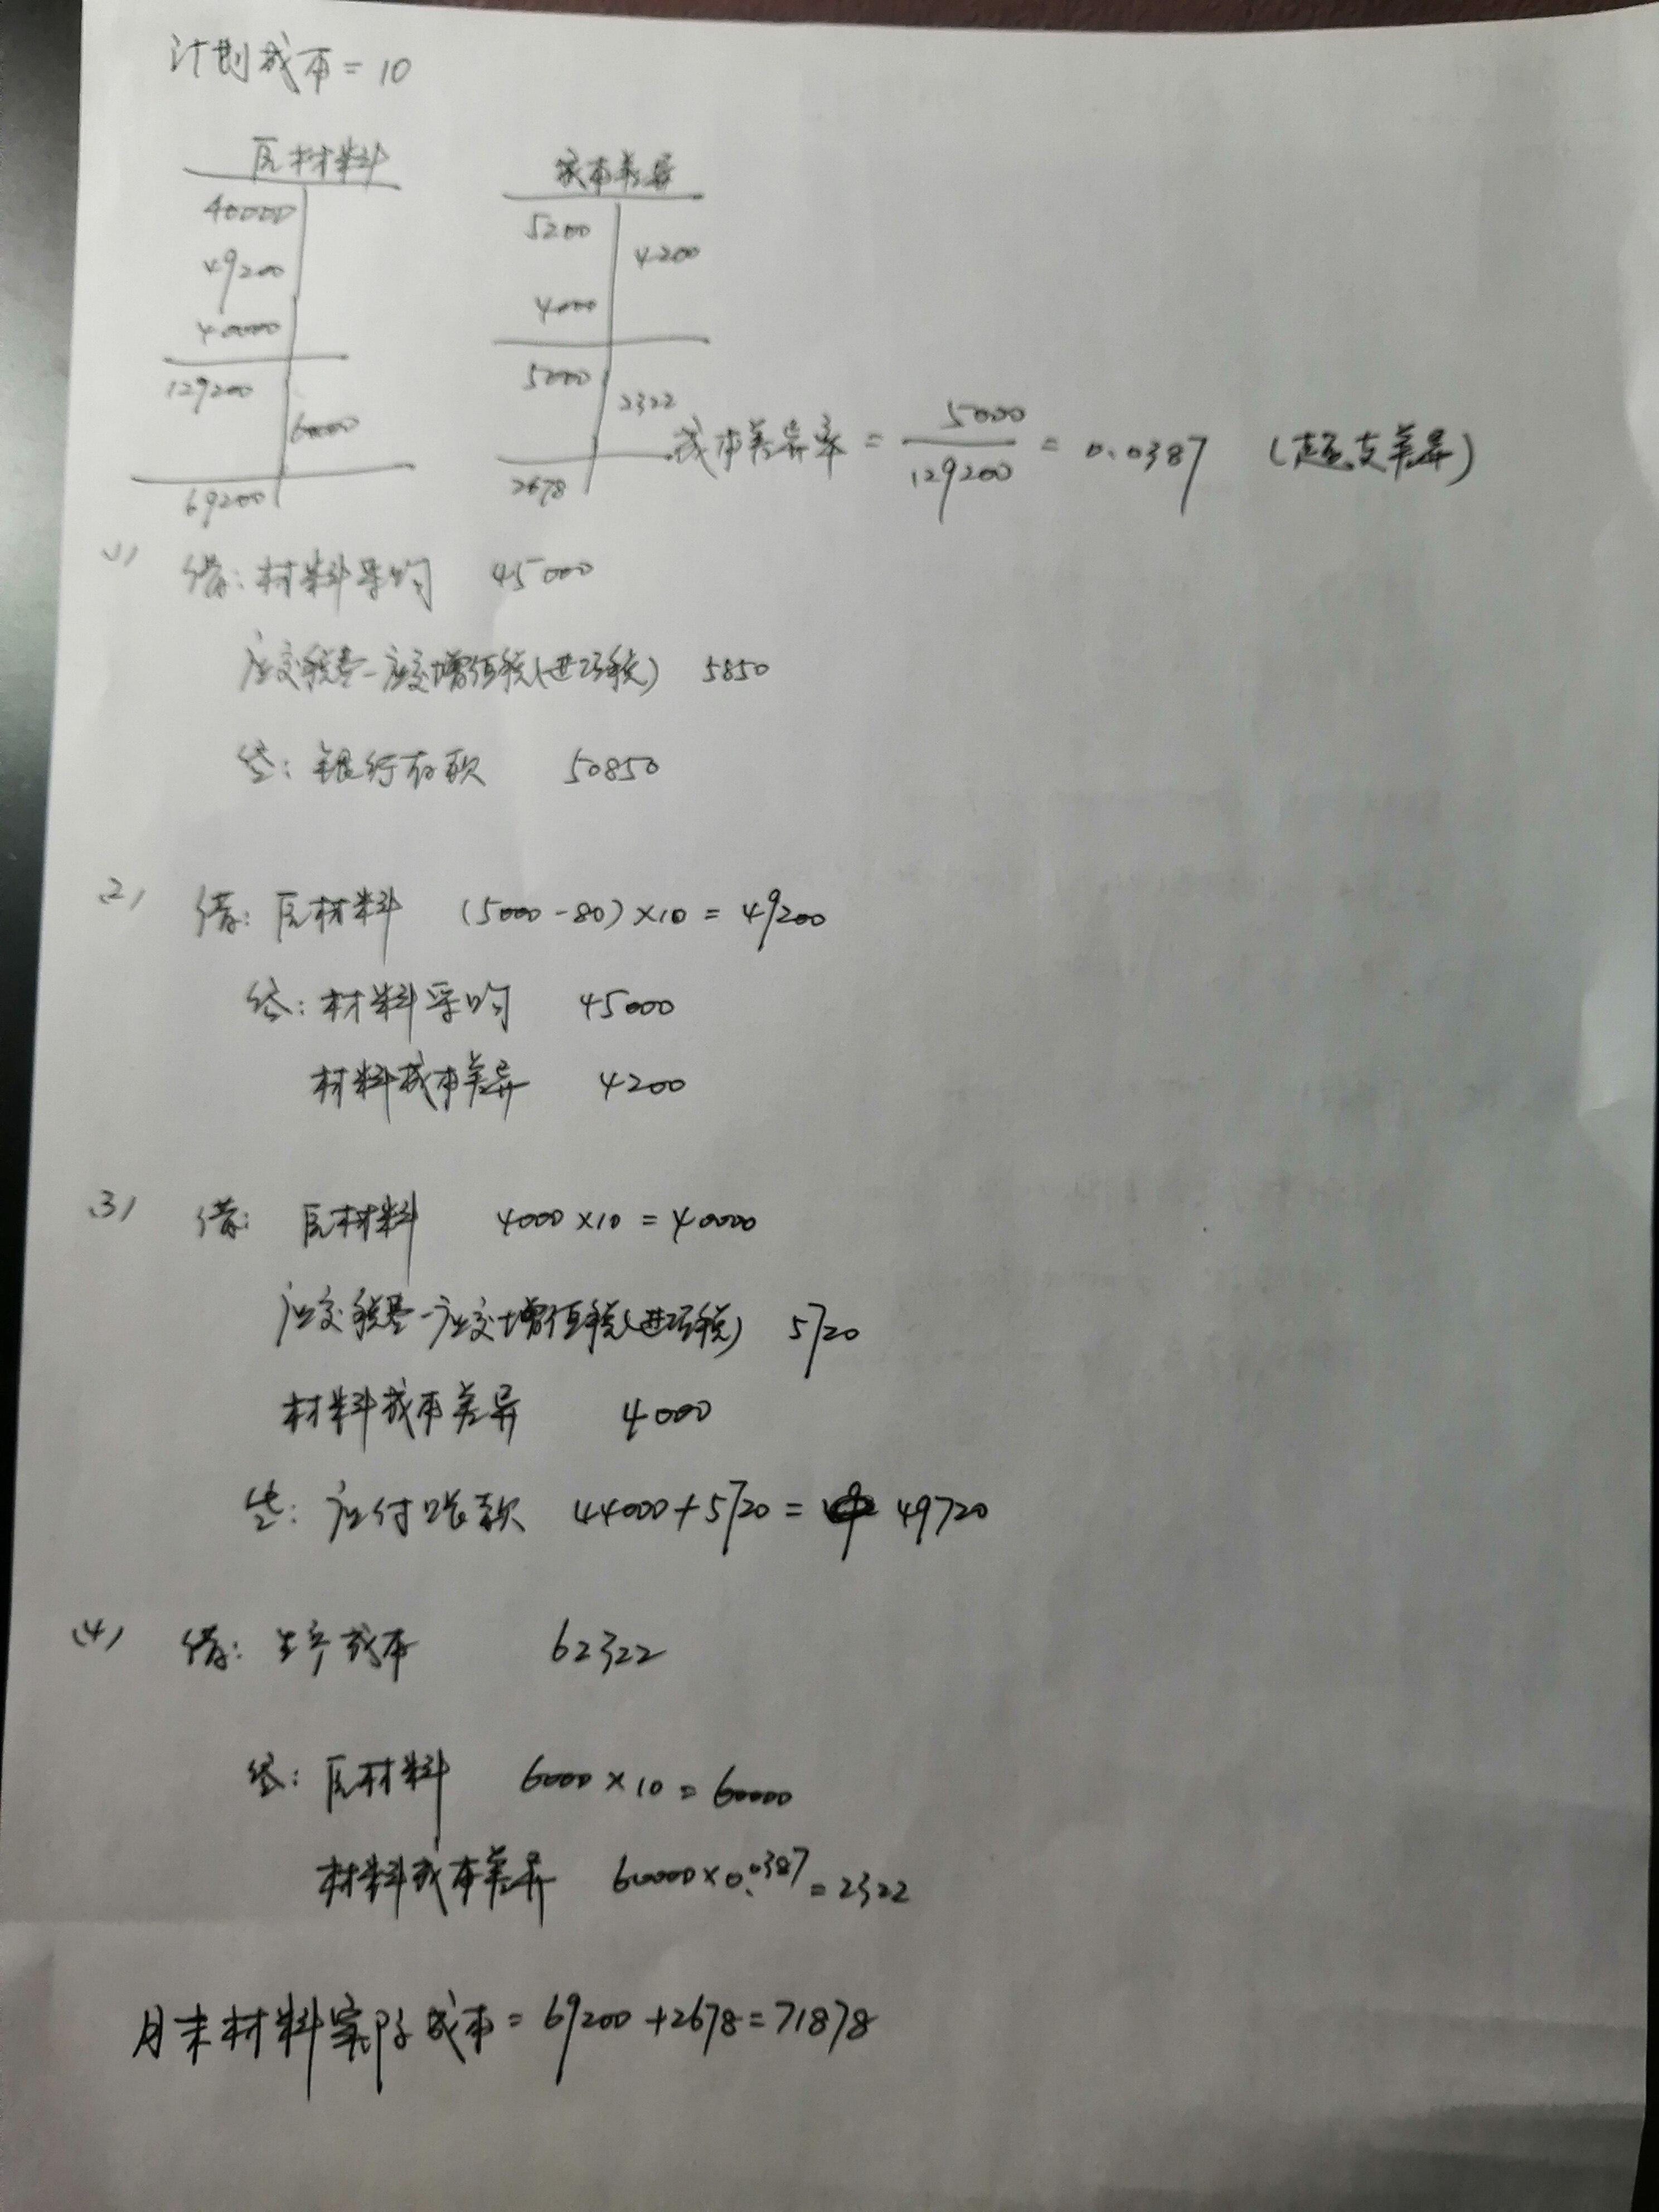 计划成本 = 10
原材料
40000
49200
40000
129200
60000
69200
成本差异
5200
4200
4000
5000
2322
2678
成本差异率 = 5000/129200 = 0.0387 (超支差异)
(1) 借: 材料采购 45000
应交税费-应交增值税(进项税) 5850
贷: 银行存款 50850
(2) 借: 原材料 (5000-80)×10 = 49200
贷: 材料采购 45000
材料成本差异 4200
(3) 借: 原材料 4000×10 = 40000
应交税费-应交增值税(进项税) 5720
材料成本差异 4000
贷: 应付账款 44000+5720 = 49720
(4) 借: 生产成本 62322
贷: 原材料 6000×10 = 60000
材料成本差异 60000×0.0387 = 2322
月末材料实际成本 = 69200+2678=71878